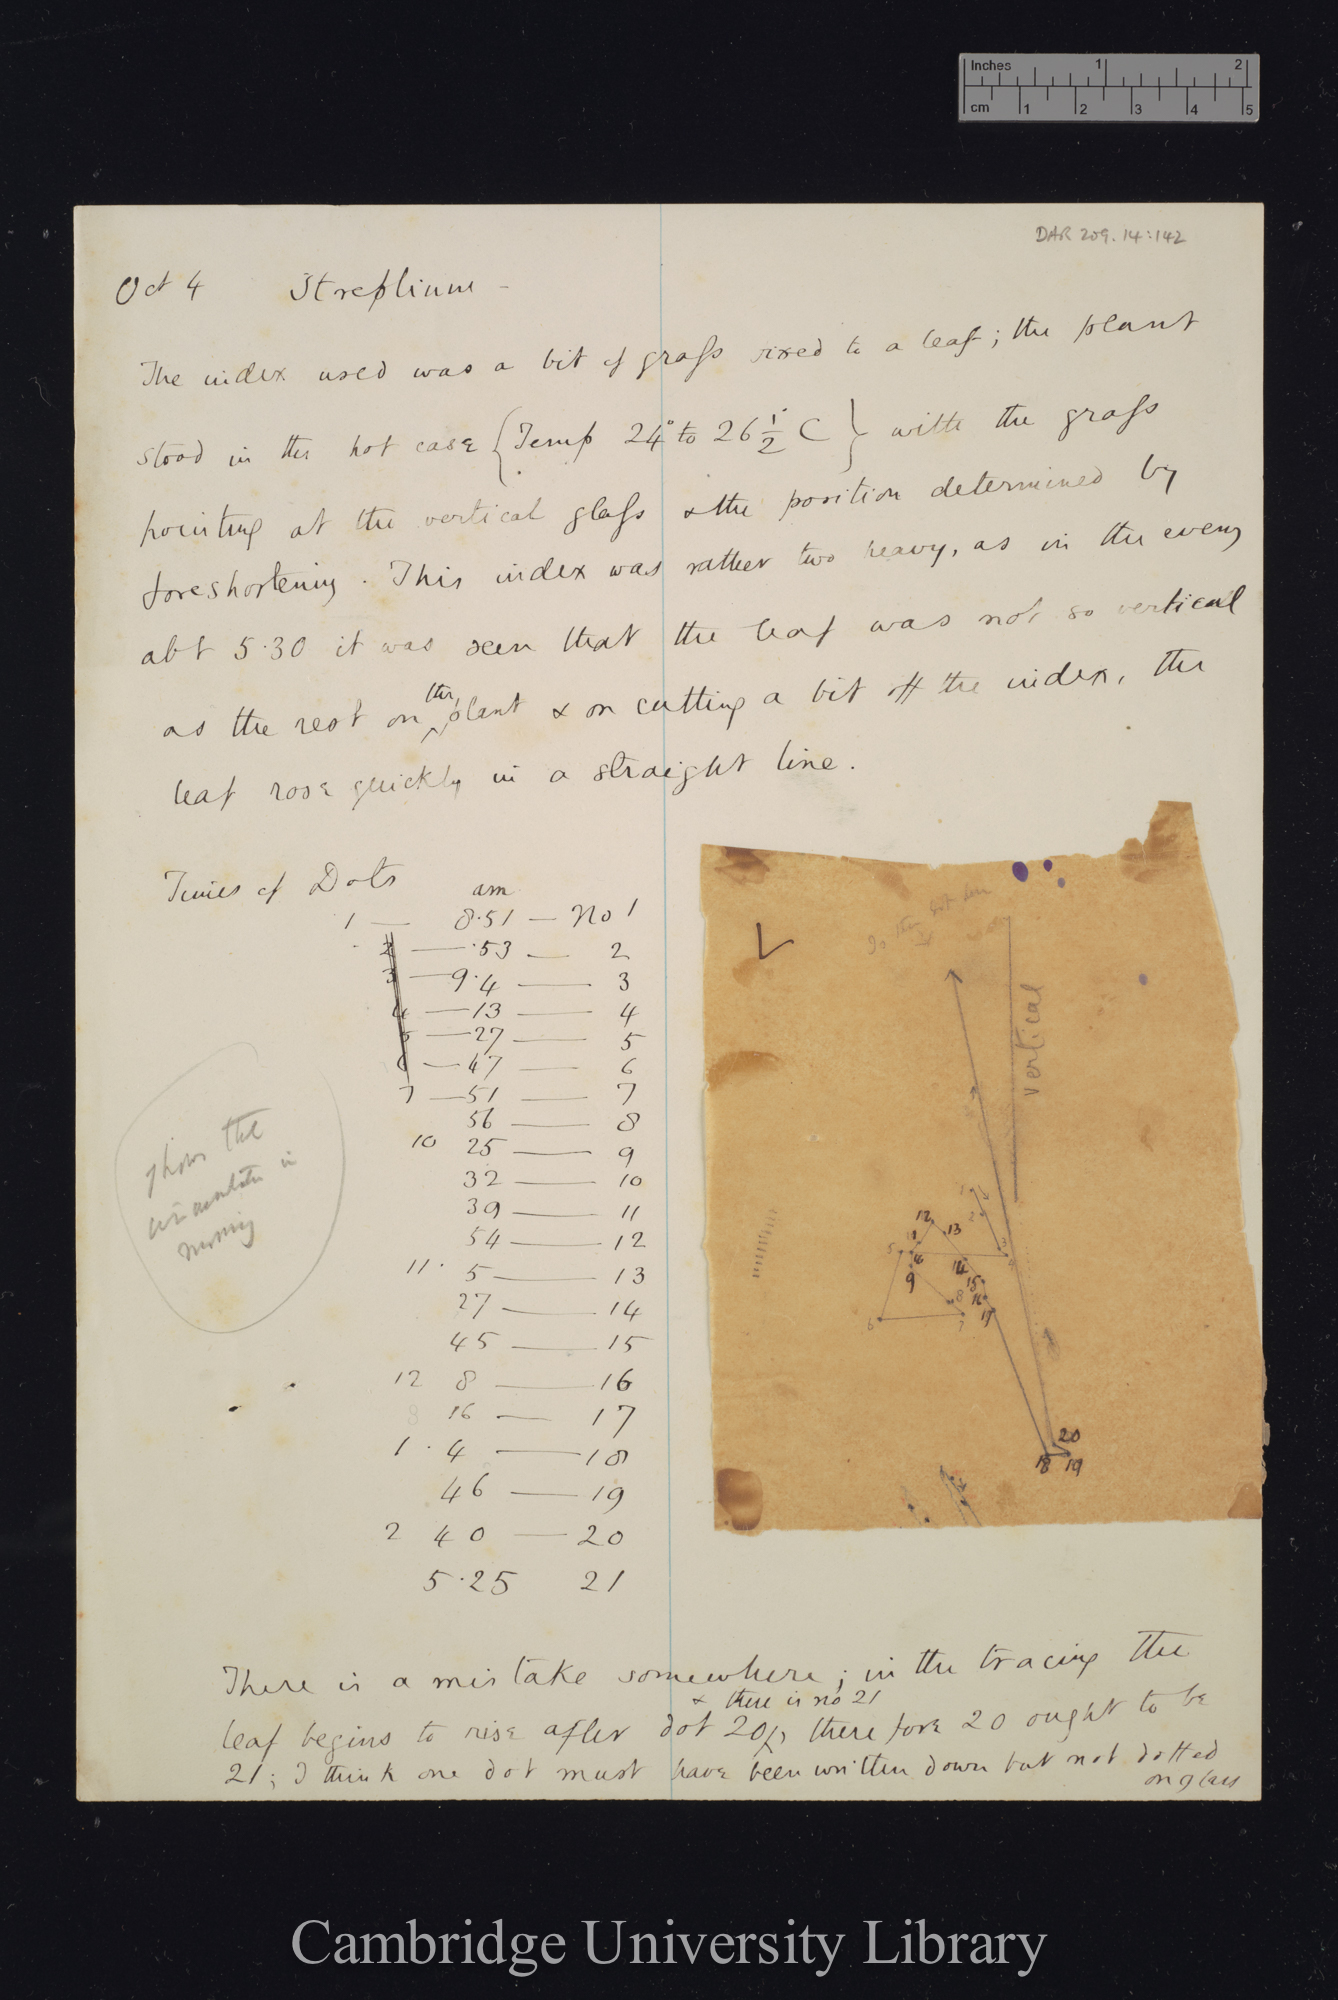 Inches 1 2
cm 1 2 3 4 5
DAR 209.14:142
Oct 4 Streplium -
The index used was a bit of grass fixed to a leaf; the plant
stood in the hot case {Temp 24° to 26 1/2° C} with the grass
pointing at the vertical glass & the position determined by
foreshortening. This index was rather two heavy, as in the eveng
abt 5.30 it was seen that the leaf was not so vertical
as the rest on the plant & on cutting a bit off the index, the
leaf rose quickly in a straight line.
Times of Dots
am
1 — 8.51 — No 1
2 — .53 — 2
3 — 9.4 — 3
4 — 13 — 4
5 — 27 — 5
6 — 47 — 6
7 — 51 — 7
56 — 8
10 25 — 9
32 — 10
39 — 11
54 — 12
11. 5 — 13
27 — 14
45 — 15
12 8 — 16
16 — 17
1. 4 — 18
46 — 19
2 40 — 20
5.25 21
shows the
in
morning
vertical
1
2
3
4
5
6
7
8
9
12
13
14
15
16
17
18
19
20
There is a mistake somewhere; in the tracing the
leaf begins to rise after dot 20 & there is no 21, therefore 20 ought to be
21; I think one dot must have been written down but not dotted
on glass
Cambridge University Library